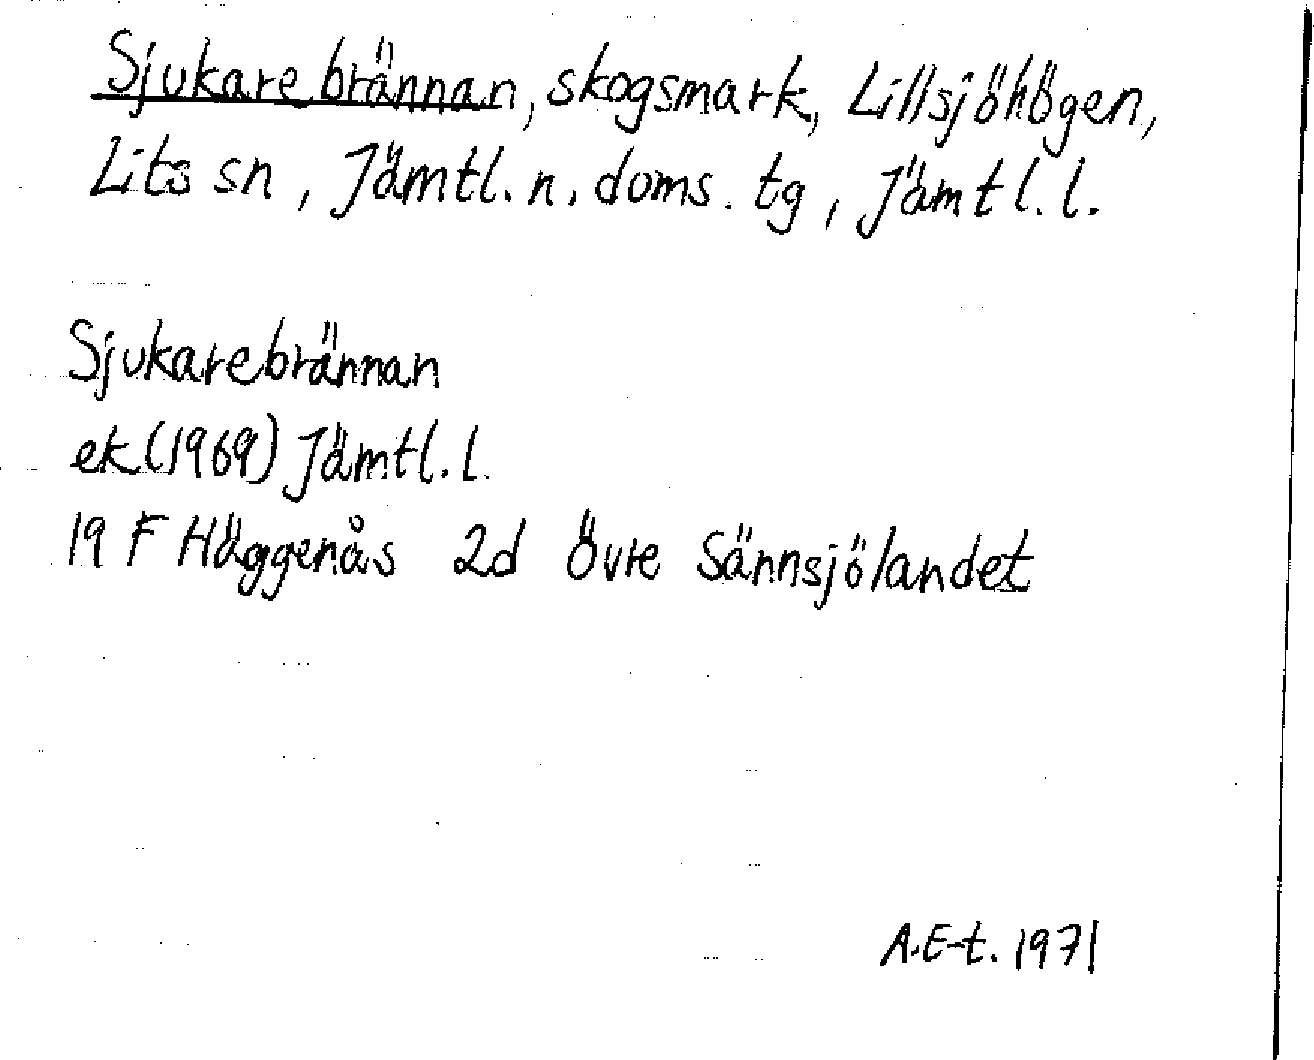 Sjukarebrännan, skogsmark, Lillsjöhögen,
Lits sn, Jämtl. n. doms. tg, Jämtl. l.
Sjukarebrännan
ek (1969) Jämtl. l.
19 F Häggenås 2d Övre Sännsjölandet
A.E-t. 1971